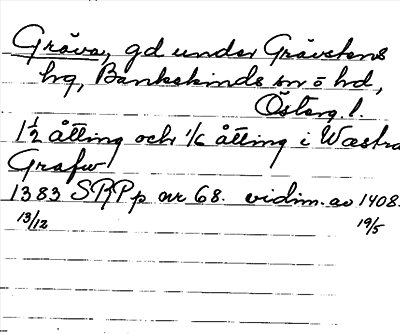 Gräva, gd under Grävstens
hg, Bankekinds sn o hd,
Österg. l.
1½ åtting och 1/6 åtting i Wæstra
Grafw
1383 SRPp nr 68. vidim. av 1408.
13/12 19/5